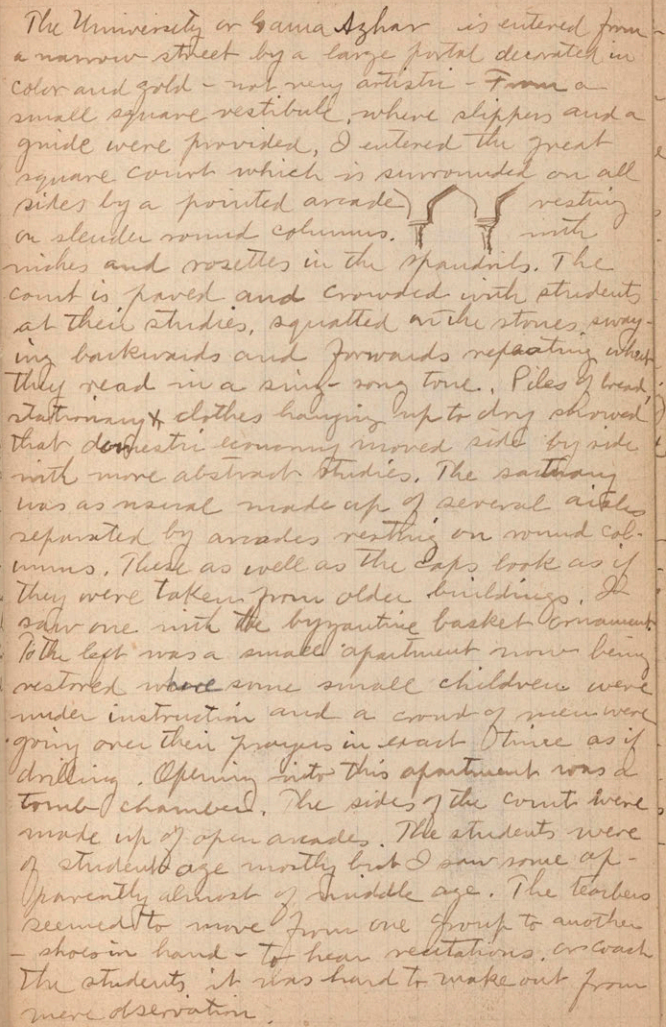 The University or Gama Azhar is entered from
a narrow street by a large portal decorated in
color and gold - not very artistic - From a
small square vestibule, where slippers and a
guide were provided, I entered the great
square court which is surrounded on all
sides by a pointed arcade) resting
on slender round columns. with
niches and rosettes in the spandrils. The
court is paved and crowded with students
at their studies, squatted on the stones sway-
ing backwards and forwards repeating what
they read in a sing-song tone. Piles of bread,
stationary & clothes hanging up to dry showed
that domestic economy moved side by side
with more abstract studies. The sactuary
was as usual made up of several aisles
separated by arcades resting on round col-
umns. These as well as the caps look as if
they were taken from older buildings. I
saw one with the byzantine basket ornament.
To the left was a small apartment now being
restored where some small children were
under instruction and a crowd of men were
going over their prayers in exact time as if
drilling. Opening into this apartment was a
tomb chamber. The sides of the court were
made up of open arcades. The students were
of student age mostly but I saw some ap-
parently almost of middle age. The teachers
seemed to move from one group to another
- shoes in hand - to hear recitations, or coach
the students it was hard to make out from
mere observation.